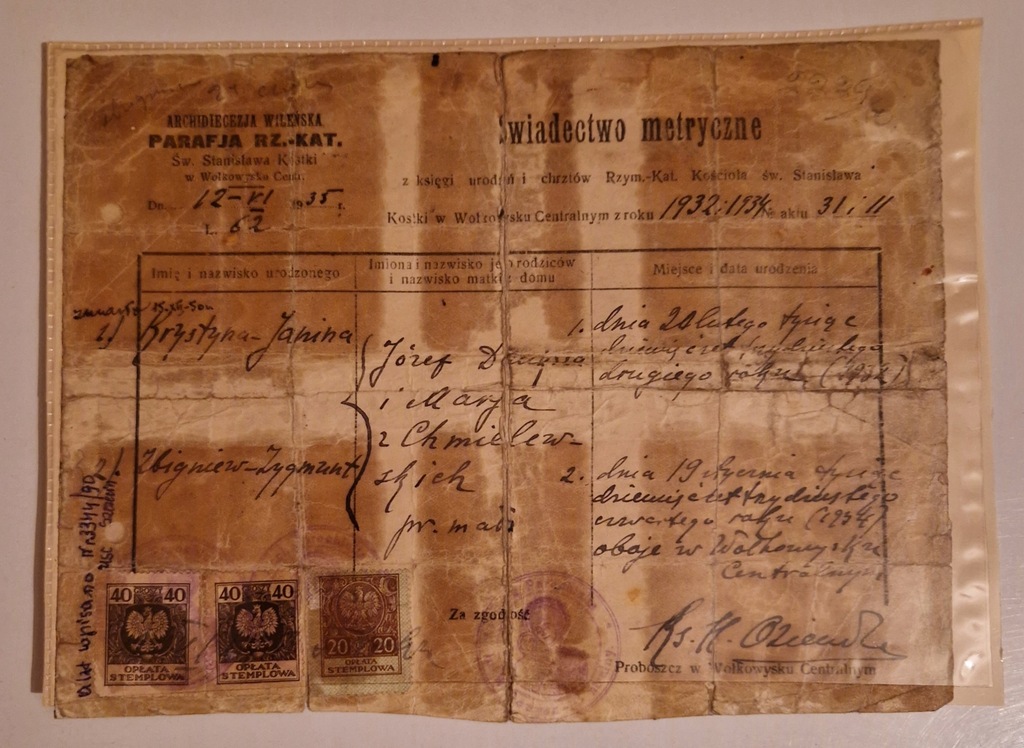 ARCHIDIECEZJA WILEŃSKA
PARAFJA RZ.-KAT.
Św. Stanisława Kostki
w Wołkowysku Centr.
Dn. 12-VI 1935 r.
L. 62
Świadectwo metryczne
z księgi urodzeń i chrztów Rzym.-Kat. Kościoła św. Stanisława
Kostki w Wołkowysku Centralnym z roku 1932 i 1934 № aktu 31 i 11
Imię i nazwisko urodzonego
Imiona i nazwisko jego rodziców i nazwisko matki z domu
Miejsce i data urodzenia
1.) Krystyna-Janina
Józef
i Marja
z Chmielew-
skich
pr. małż
1. dnia lutego tysiąc
dziewięćset trzydziestego
drugiego roku (1932)
2). Zbigniew-Zygmunt
2. dnia 19 stycznia tysiąc
dziewięćset trzydziestego
czwartego roku (1934)
oboje w Wołkowysku
Centralnym
Akt wpisano Nr 3344/90
USC
40 40
OPŁATA
STEMPLOWA
40 40
OPŁATA
STEMPLOWA
20 20
OPŁATA
STEMPLOWA
Za zgodność
Ks. H.
Proboszcz w Wołkowysku Centralnym